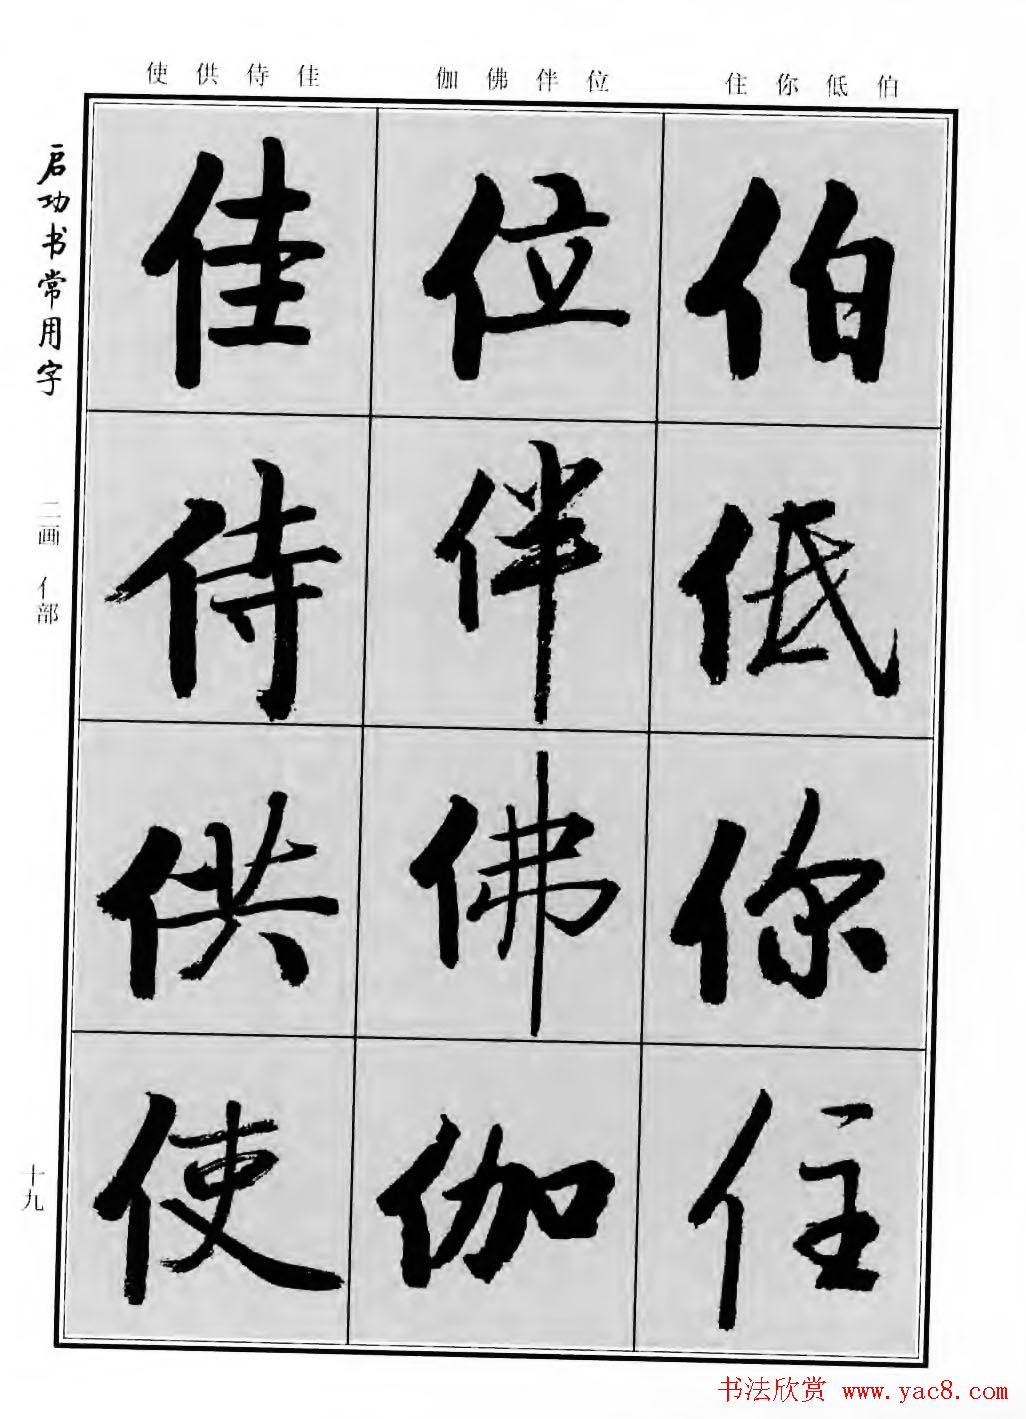 伯低你住
位伴佛伽
佳侍供使
伯
低
你
住
位
伴
佛
伽
佳
侍
供
使
启功书常用字
二画 亻部
十九
书法欣赏 www.yac8.com